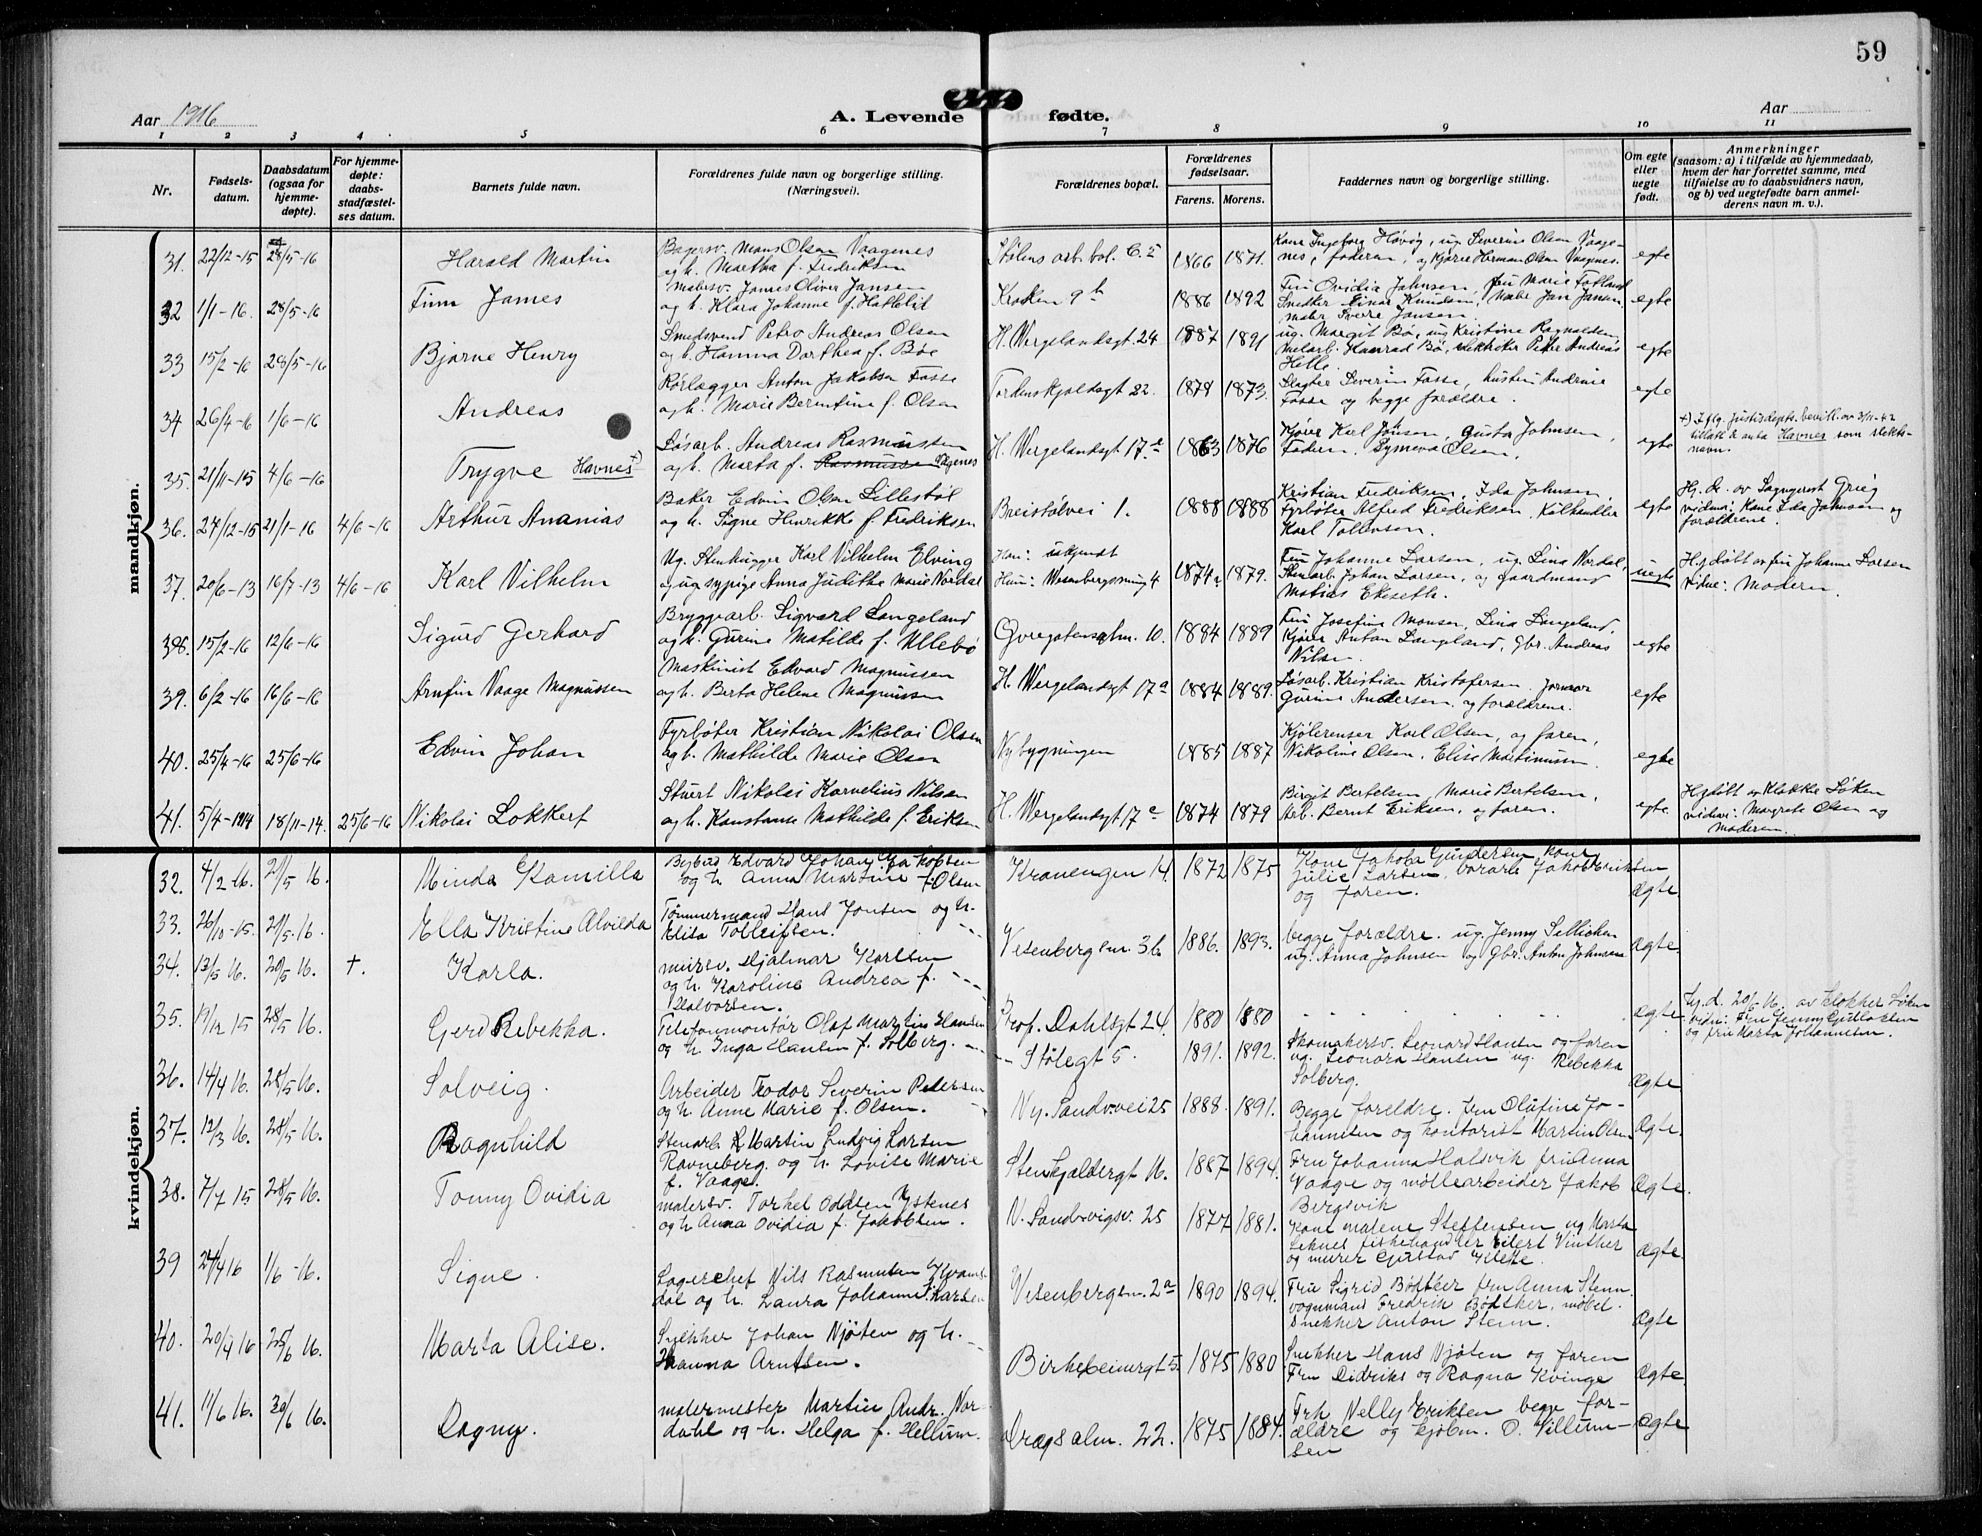 59
Aar 1916
A. Levende fødte.
Aar
1 2 3 4 5 6 7 8 9 10 11
Nr.
Fødsels-
datum.
Daabsdatum
(ogsaa for
hjemme-
døpte).
For hjemme-
døpte:
daabs-
stadfæstel-
ses datum.
Barnets fulde navn.
Forældrenes fulde navn og borgerlige stilling.
(Næringsvei).
Forældrenes bopæl.
Forældrenes
fødselsaar.
Farens. Morens.
Faddernes navn og borgerlige stilling.
Om egte
eller
uegte
født.
Anmerkninger
(saasom: a) i tilfælde av hjemmedaab,
hvem der har forrettet samme, med
tilføielse av to daabsvidners navn,
og b) ved uegtefødte barn anmel-
derens navn m. v.).
mandkjøn.
31. 22/12-15 28/5-16 Harald Martin
Bagersv. Mons Olsen Vaagenes
og h. Martha f. Fredriksen
Stølens arb. bol. C. 5 1866 1871.
Kone Ingeborg Høvøg, ug. Severine Olsen Vaage-
nes, faderen, og kjører Herman Olsen Vaagenes.
egte
32 1/1-16. 28/5-16 Finn James
Malersv. James Oliver Jansen
og h. Klara Johanne f. Hatlelid
Kroken 9 b 1886 1892
Fru Ovidia Johnsen, fru Marie Folland
Snedker Einar Knudsen, Maler Jan Jansen,
maler Sverre Jansen.
egte
33 15/2-16 28/5-16 Bjarne Henry
Smedsvend Petro Andreas Olsen
og h. Hanna Dorthea f. Bøe
H. Wergelandsgt 24 1887 1891
ug. Margit Bø, ug Kristine Ragnalden,
melarb. Konrad Bø, elektriker Peter Andreas
Helle.
egte
34 26/4-16 1/6-16 Andreas
Rørlægger Anton Jakobsen Fosse
og h. Marie Berentine f. Olsen
Tordenskjoldsgt 22. 1878 1873.
Slagter Severin Fosse, hustru Andrine
Fosse og begge forældre.
egte
35. 21/11-15 4/6-16 Trygve Havnes +)
Løsarb. Andreas Rasmussen
og h. Marta f. Rasmussen Vågenes
H. Wergelandsgt 17 e 1863 1876
Kjører Karl Jonsen, Gusta Johnsen,
Faderen. Synneva Olsen.
egte
+) Iflg. Justisdepts. bevill. av 3/11-42
tillatt å anta Havnes som slekts-
navn.
36. 27/12-15 21/1-16 4/6-16 Arthur Ananias
Baker Edvin Olsen Lillestøl
og h. Signe Henrikke f. Fredriksen
Breistølvei 1. 1888 1888
Kristian Fredriksen, Ida Johnsen,
Fyrbøter Alfred Fredriksen, Kulhandler
Karl Tollevsen
egte
Hj. d. av Sogneprest Grieg
vidner: Kone Ida Johnsen og
forældrene.
37. 20/6-13 16/7-13 4/6-16 Karl Vilhelm
Ug. Stenhugger Karl Vilhelm Elving
og ug sypige Anna Juditha Marie Nordal
Han: ukjendt
Hun: Wesenbergsmug 4 1874 1879.
Fru Johanne Larsen, ug. Lina Nordal,
Stenarb. Johan Larsen, og gaardmand
Matias Ekseth.
uegte
Hj. døbt av fru Johanne Larsen
vidne: Moderen.
38. 15/2-16 12/6-16 Sigurd Gerhard
Bryggearb. Sigvard Langeland
og h. Gurine Matilde f. Ullebø
Øvregatensalm. 10. 1884 1889
Fru Josefine Monsen, Lina Lingeland,
Kjører Anton Langeland, gbr. Andreas
Nilsen.
egte
39. 6/2-16 16/6-16 Arnfin Vaage Magnussen
Maskinist Edvard Magnussen
og h. Berta Helene Magnussen
H. Wergelandsgt 17 a 1884 1889.
Løsarb. Kristian Kristofersen. Jormor
Gurine Andersen, og forældrene.
egte
40. 25/4-16 25/6-16 Edvin Johan
Fyrbøter Kristian Nikolai Olsen
og h. Mathilde Marie Olsen
Nybygningen 1885 1887
Kjølerenser Karl Olsen, og faren,
Nikoline Olsen, Elise Martinussen.
egte
41. 5/4-1914 18/11-14. 25/6-16 Nikolai Lokkert
Stuert Nikolai Kornelius Nilsen
og h. Konstanse Mathilde f. Eriksen
H. Wergelandsgt 17 e 1874 1879
Birgit Bertelsen, Marie Bertelsen,
Arb. Bernt Eriksen, og faren.
egte.
Hj. døbt av Klokker Løken
vidner: Margrete Olsen og
Moderen.
kvindekjøn.
32. 4/2 16. 21/5 16. Minda Kamilla
Bybud Edvard Johan Jakobsen
og h Anna Martine f. Olsen
Kroneengen 14. 1872 1875
Kone Jakoba Gundersen kone
Julie Larsen, borarb Jakob Eriksen
og faren.
Ægte
33. 26/10-15. 21/5-16. Ella Kristine Alvilda
Tømmermand Hans Jonsen og h.
Elisa Tollefsen.
Vesenbergsm. 3 b. 1886. 1893.
begge forældre. ug. Jenny Sellichen
ug. Anna Johnsen og Gbr. Anton Johnsen
Ægte.
34. 13/5 16. 20/5 16. +. Karla.
murersv. Hjalmar Karlsen
og h. Karoline Andrea f.
Halvorsen.
Prof. Dahlsgt 24. 1880 1880
Ægte
Hj. d. 20/5 16. av klokker Løken
vidn: Fru Jenny Gulla
og fru Marta Johannesen.
35. 19/12 15 28/5 16. Gerd Rebekka.
Telefonmontør Olaf Martin Hansen
og h Inga Hansen f. Solberg.
Stølegt 5. 1891. 1892.
Skomakersv. Leonard Hansen og faren
ug. Leonora Hansen ug Rebekka
Solberg.
Ægte
36. 14/4 16. 28/5 16. Solveig.
Arbeider Teodor Severin Petersen
og h Anne Marie f. Olsen.
Ny. Sandv.vei 25 1888. 1891.
Begge foreldre. fru Olufine Jo-
hannesen og kontorist Martin Olsen
Ægte.
37. 12/3 16. 28/5 16. Ragnhild
Stenarb Martin Ludvig Larsen
Ravneberg og h. Lovise Marie
f. Vaage.
Stenkjeldergt 16. 1887 1894.
Fru Johanna Halsvik fru Anna
Vaage og møllearbeider Jakob
Bergsvik
Ægte.
38. 7/7 15 28/5 16. Tonny Ovidia
malersv. Torkel Oddsen Ystenes
og h Anna Ovidia f. Jakobsen.
N. Sandvigsv. 25 1877 1881.
Kone Malene Steffensen ug Marta
Seknes fiskehandler Eilert Vinther
og murer Gjustad
Ægte.
39 24/4 16 1/6-16. Signe.
Lagerchef Nils Rasmusen Kvams-
dal og h. Laura Johanne f. Larsen
Vesenbergsm. 2 a 1890 1894.
Fru Sigrid Bødtker fru Anna Stenn
vognmand Fredrik Bødtker, møbel-
snekker Anton Stenn.
Ægte
40. 20/4 16 25/6 16. Marta Alise.
Snekker Johan Njøten og h.
Hanna Arntsen.
Birkebeinergt 5. 1875 1880
Snekker Hans Njøten og faren
Fru Didriks og Ragna Kvinge
Ægte.
41. 11/6 16. 30/6 16. Dagny.
malermester Martin Andr. Nor-
dahl og h. Helga f. Hellum.
Dragsalm. 22. 1875 1884.
Frk Nelly Eriksen begge for-
ældre og kjøbm. O. Villum-
sen
Ægte